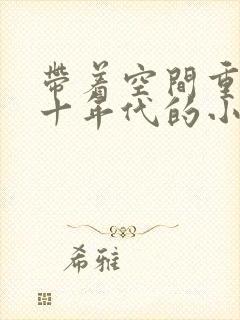 带着空間重
十年代的小
希雅